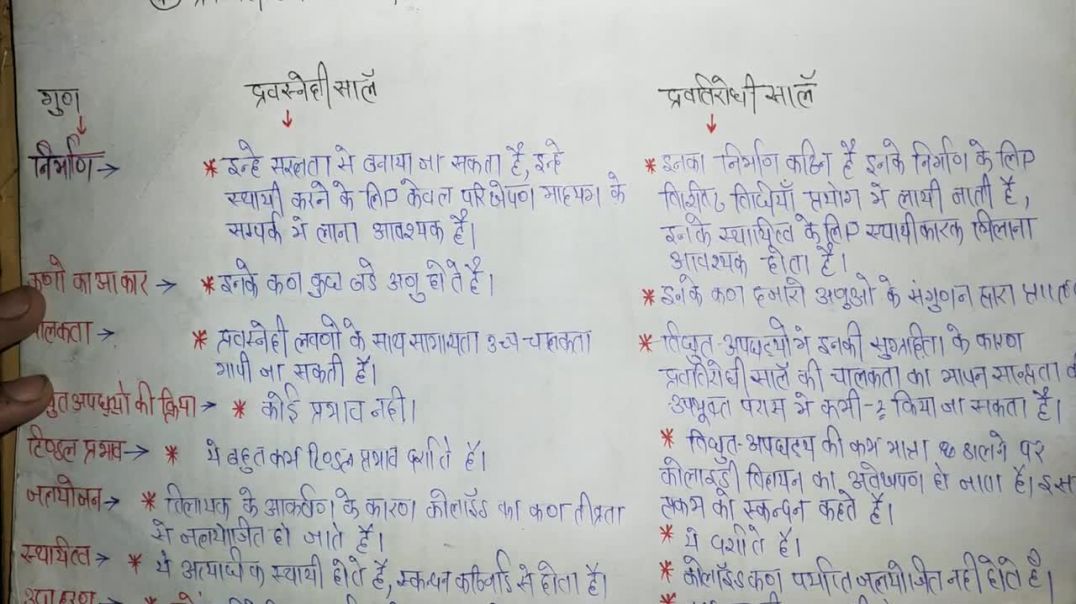 गुण
द्रवस्नेही सालॅ
द्रवविरोधी सालॅ
निर्माण →
* इन्हे सरलता से बनाया जा सकता है, इन्हे
स्थायी करने के लिए केवल परिक्षेपण माध्यम के
सम्पर्क मे लाना आवश्यक है।
* इनका निर्माण कठिन है इनके निर्माण के लिए
विधियाँ प्रयोग मे लायी जाती है,
इनके स्थायित्व के लिए स्थायीकारक मिलाना
आवश्यक होता है।
कणो का आकार →
* इनके कण कुछ बडे अणु होते है।
* इनके कण हजारो अणुओ के संगुणन द्वारा
चालकता →
* द्रवस्नेही लवणो के साथ सामान्यता उच्च चालकता
मापी जा सकती है।
* विद्युत-अपघट्यो मे इनकी सुग्राहिता के कारण
द्रवविरोधी सालॅ की चालकता का मापन सान्द्रता
उपयुक्त परास मे कभी-२ किया जा सकता है।
अपघट्यो की क्रिया →
* कोई प्रभाव नही।
* विद्युत-अपघट्य की कम मात्रा डालने पर
कोलाइडी विलयन का अवक्षेपण हो जाता है। इस
प्रक्रम को स्कन्दन कहते है।
टिण्डल प्रभाव →
* ये बहुत कम टिण्डल प्रभाव दर्शाते है।
* ये दर्शाते है।
जलयोजन →
* विलायक के आकर्षण के कारण कोलॉइड का कण तीव्रता
से जलयोजित हो जाते है।
* कोलॉइड कण पर्याप्त जलयोजित नही होते है।
स्थायित्व →
* ये अत्याधिक स्थायी होते है, स्कन्दन कठिनाई से होता है।